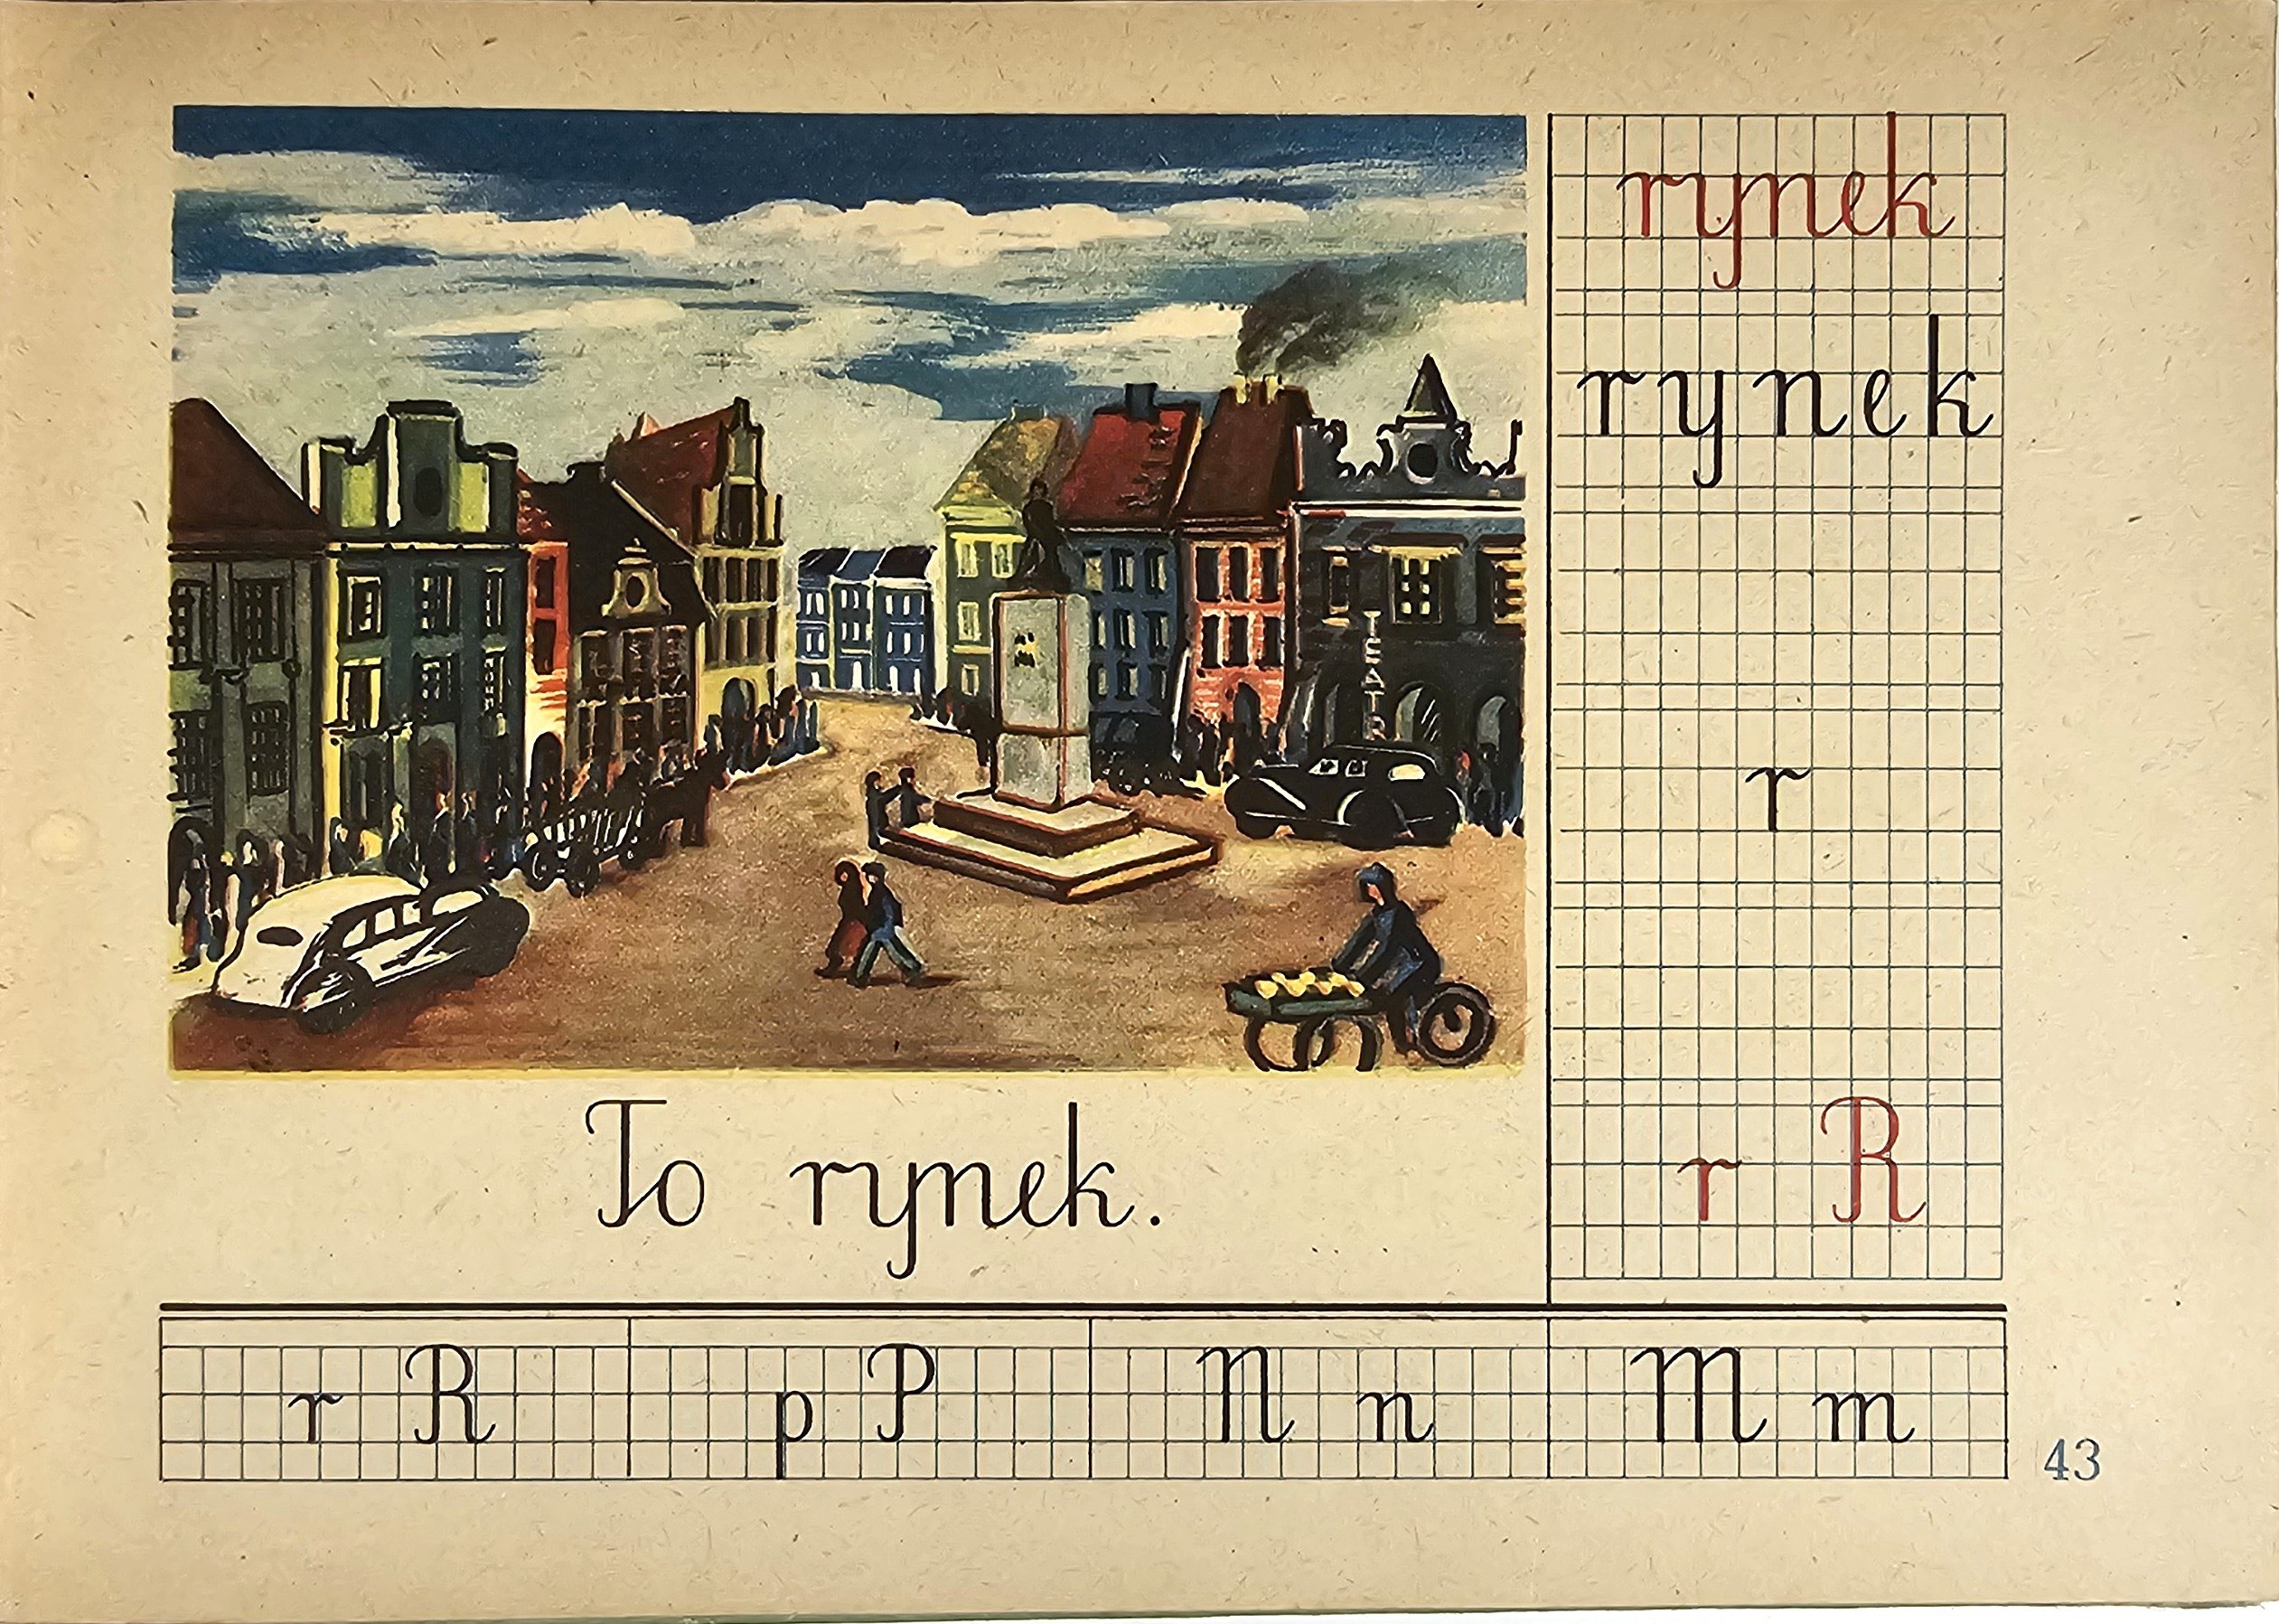 TEATR
To rynek.
rynek
rynek
r
r R
r R p P N n M m
43